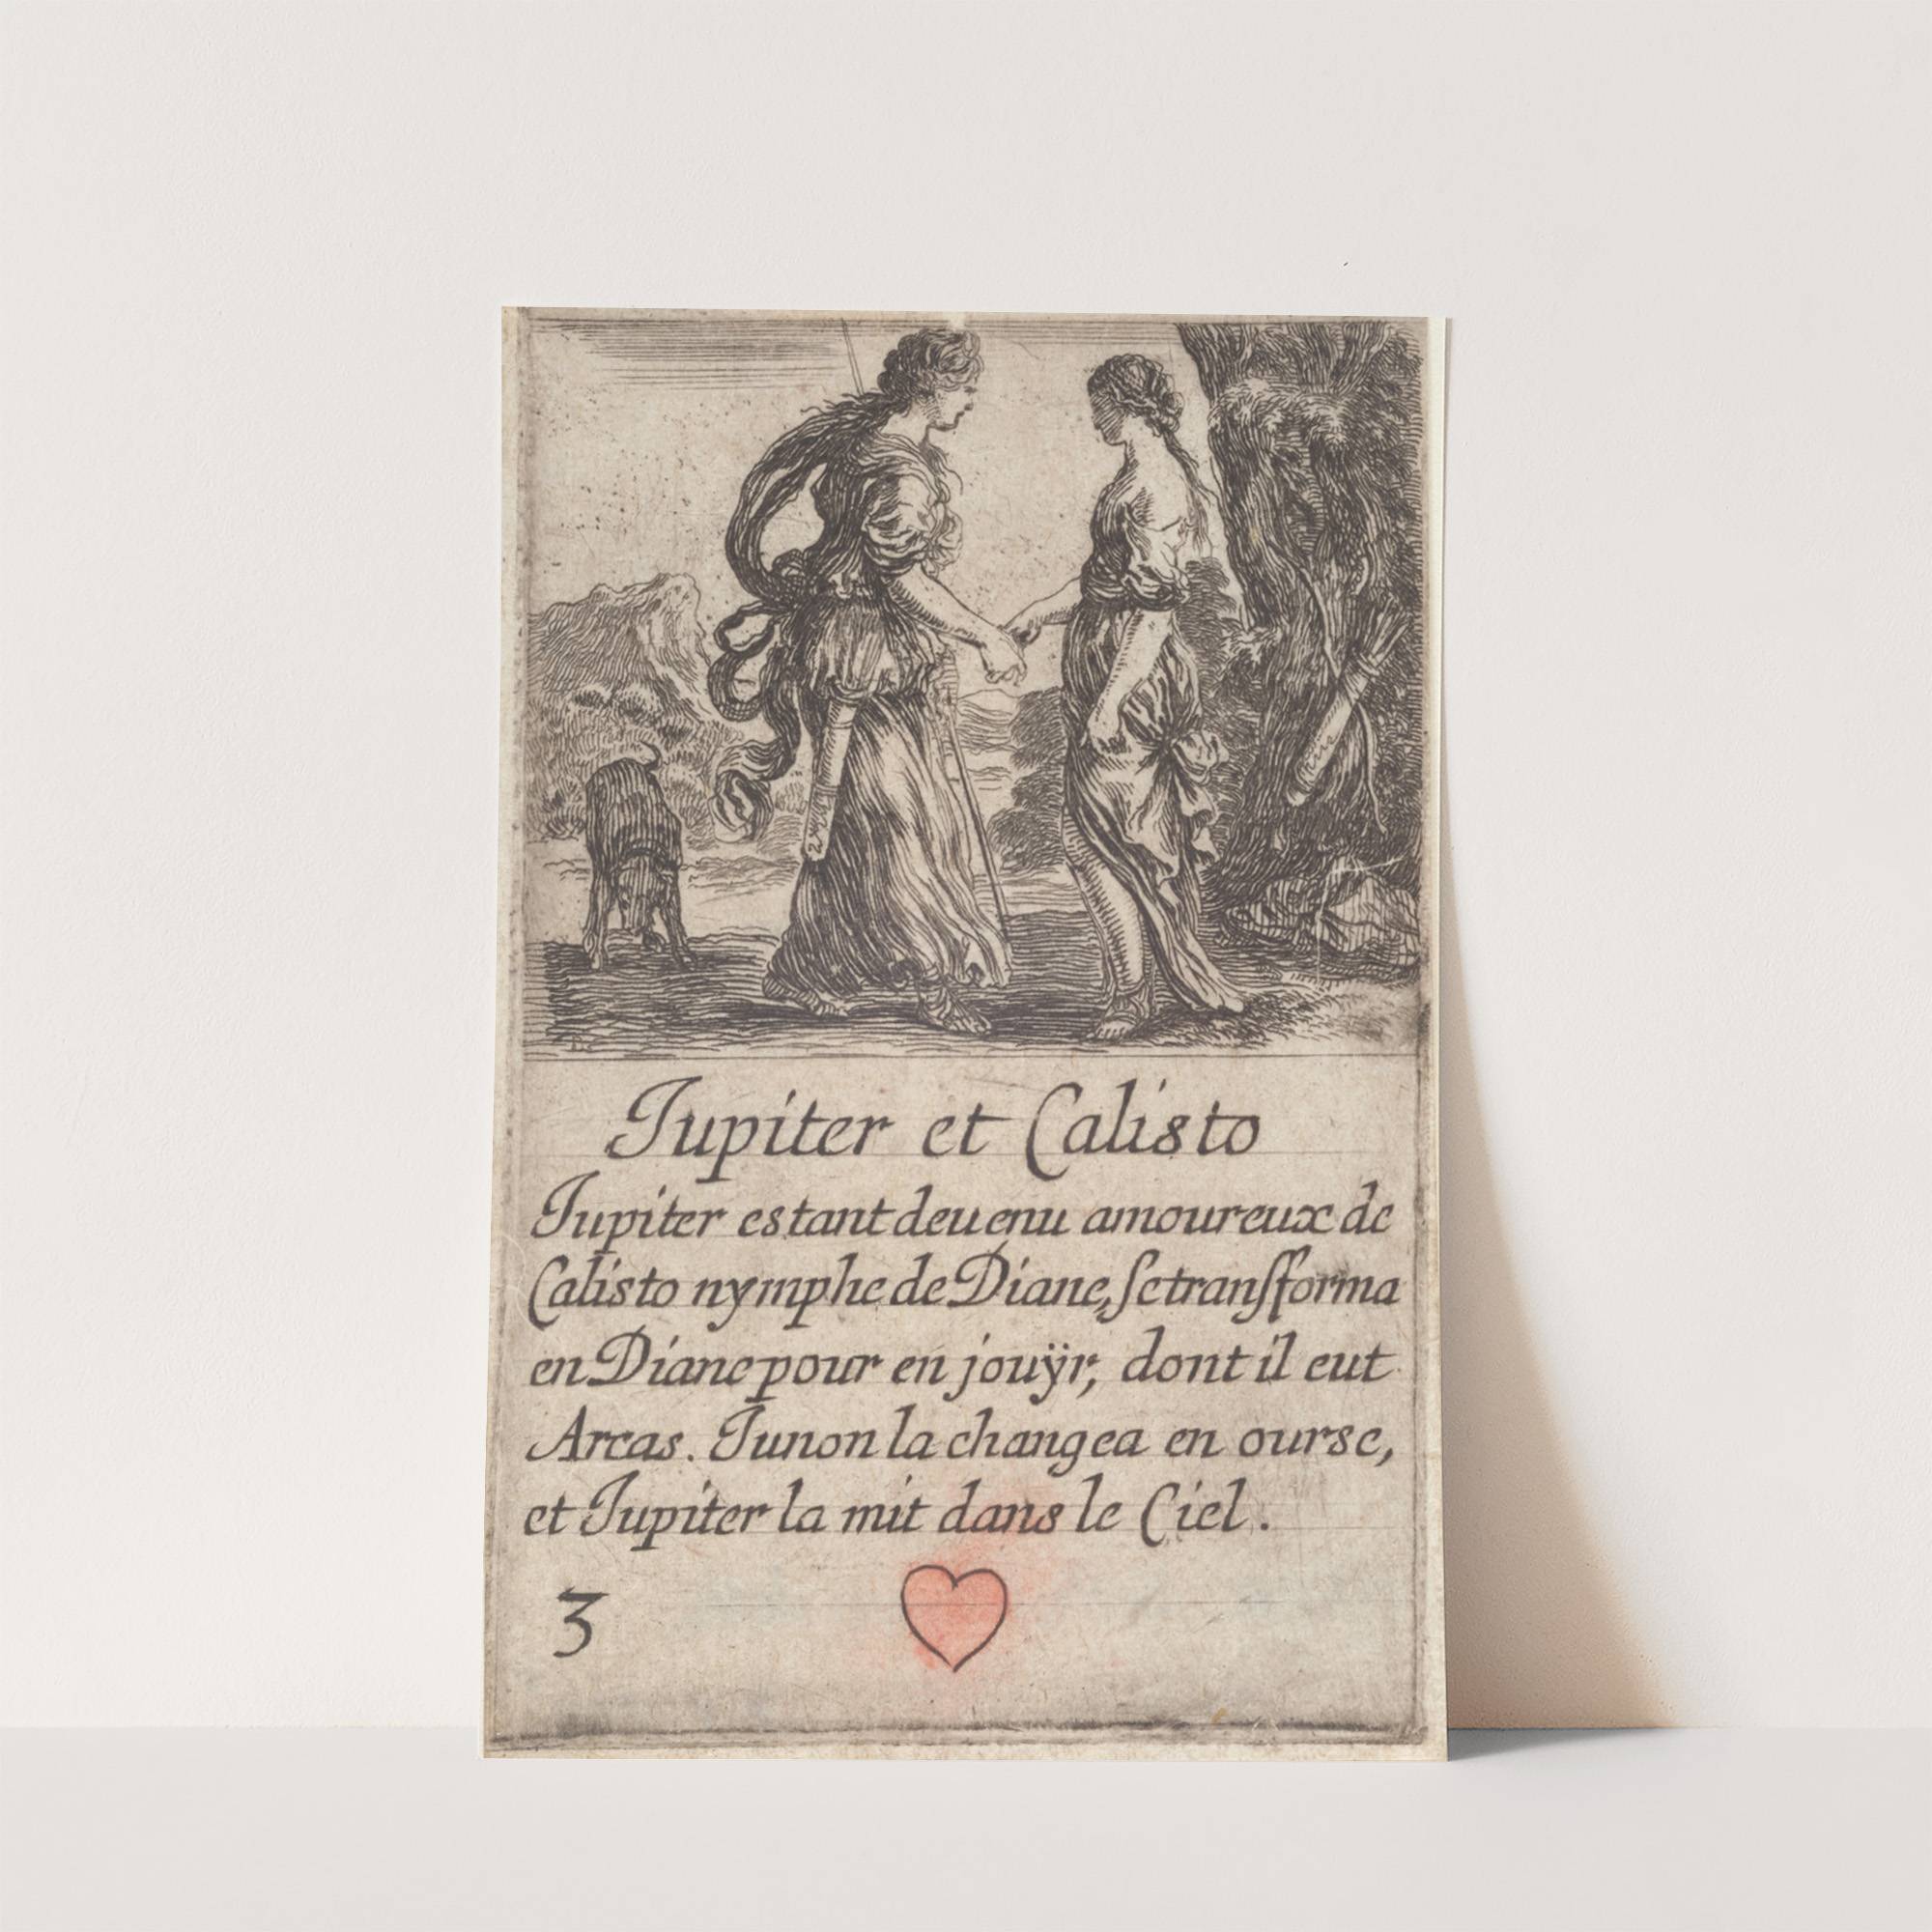 Iupiter et Calisto
Iupiter estant deuenu amoureux de
Calisto nymphe de Diane, se transforma
en Diane pour en jouÿr, dont il eut
Arcas. Iunon la changea en ourse,
et Iupiter la mit dans le Ciel.
3